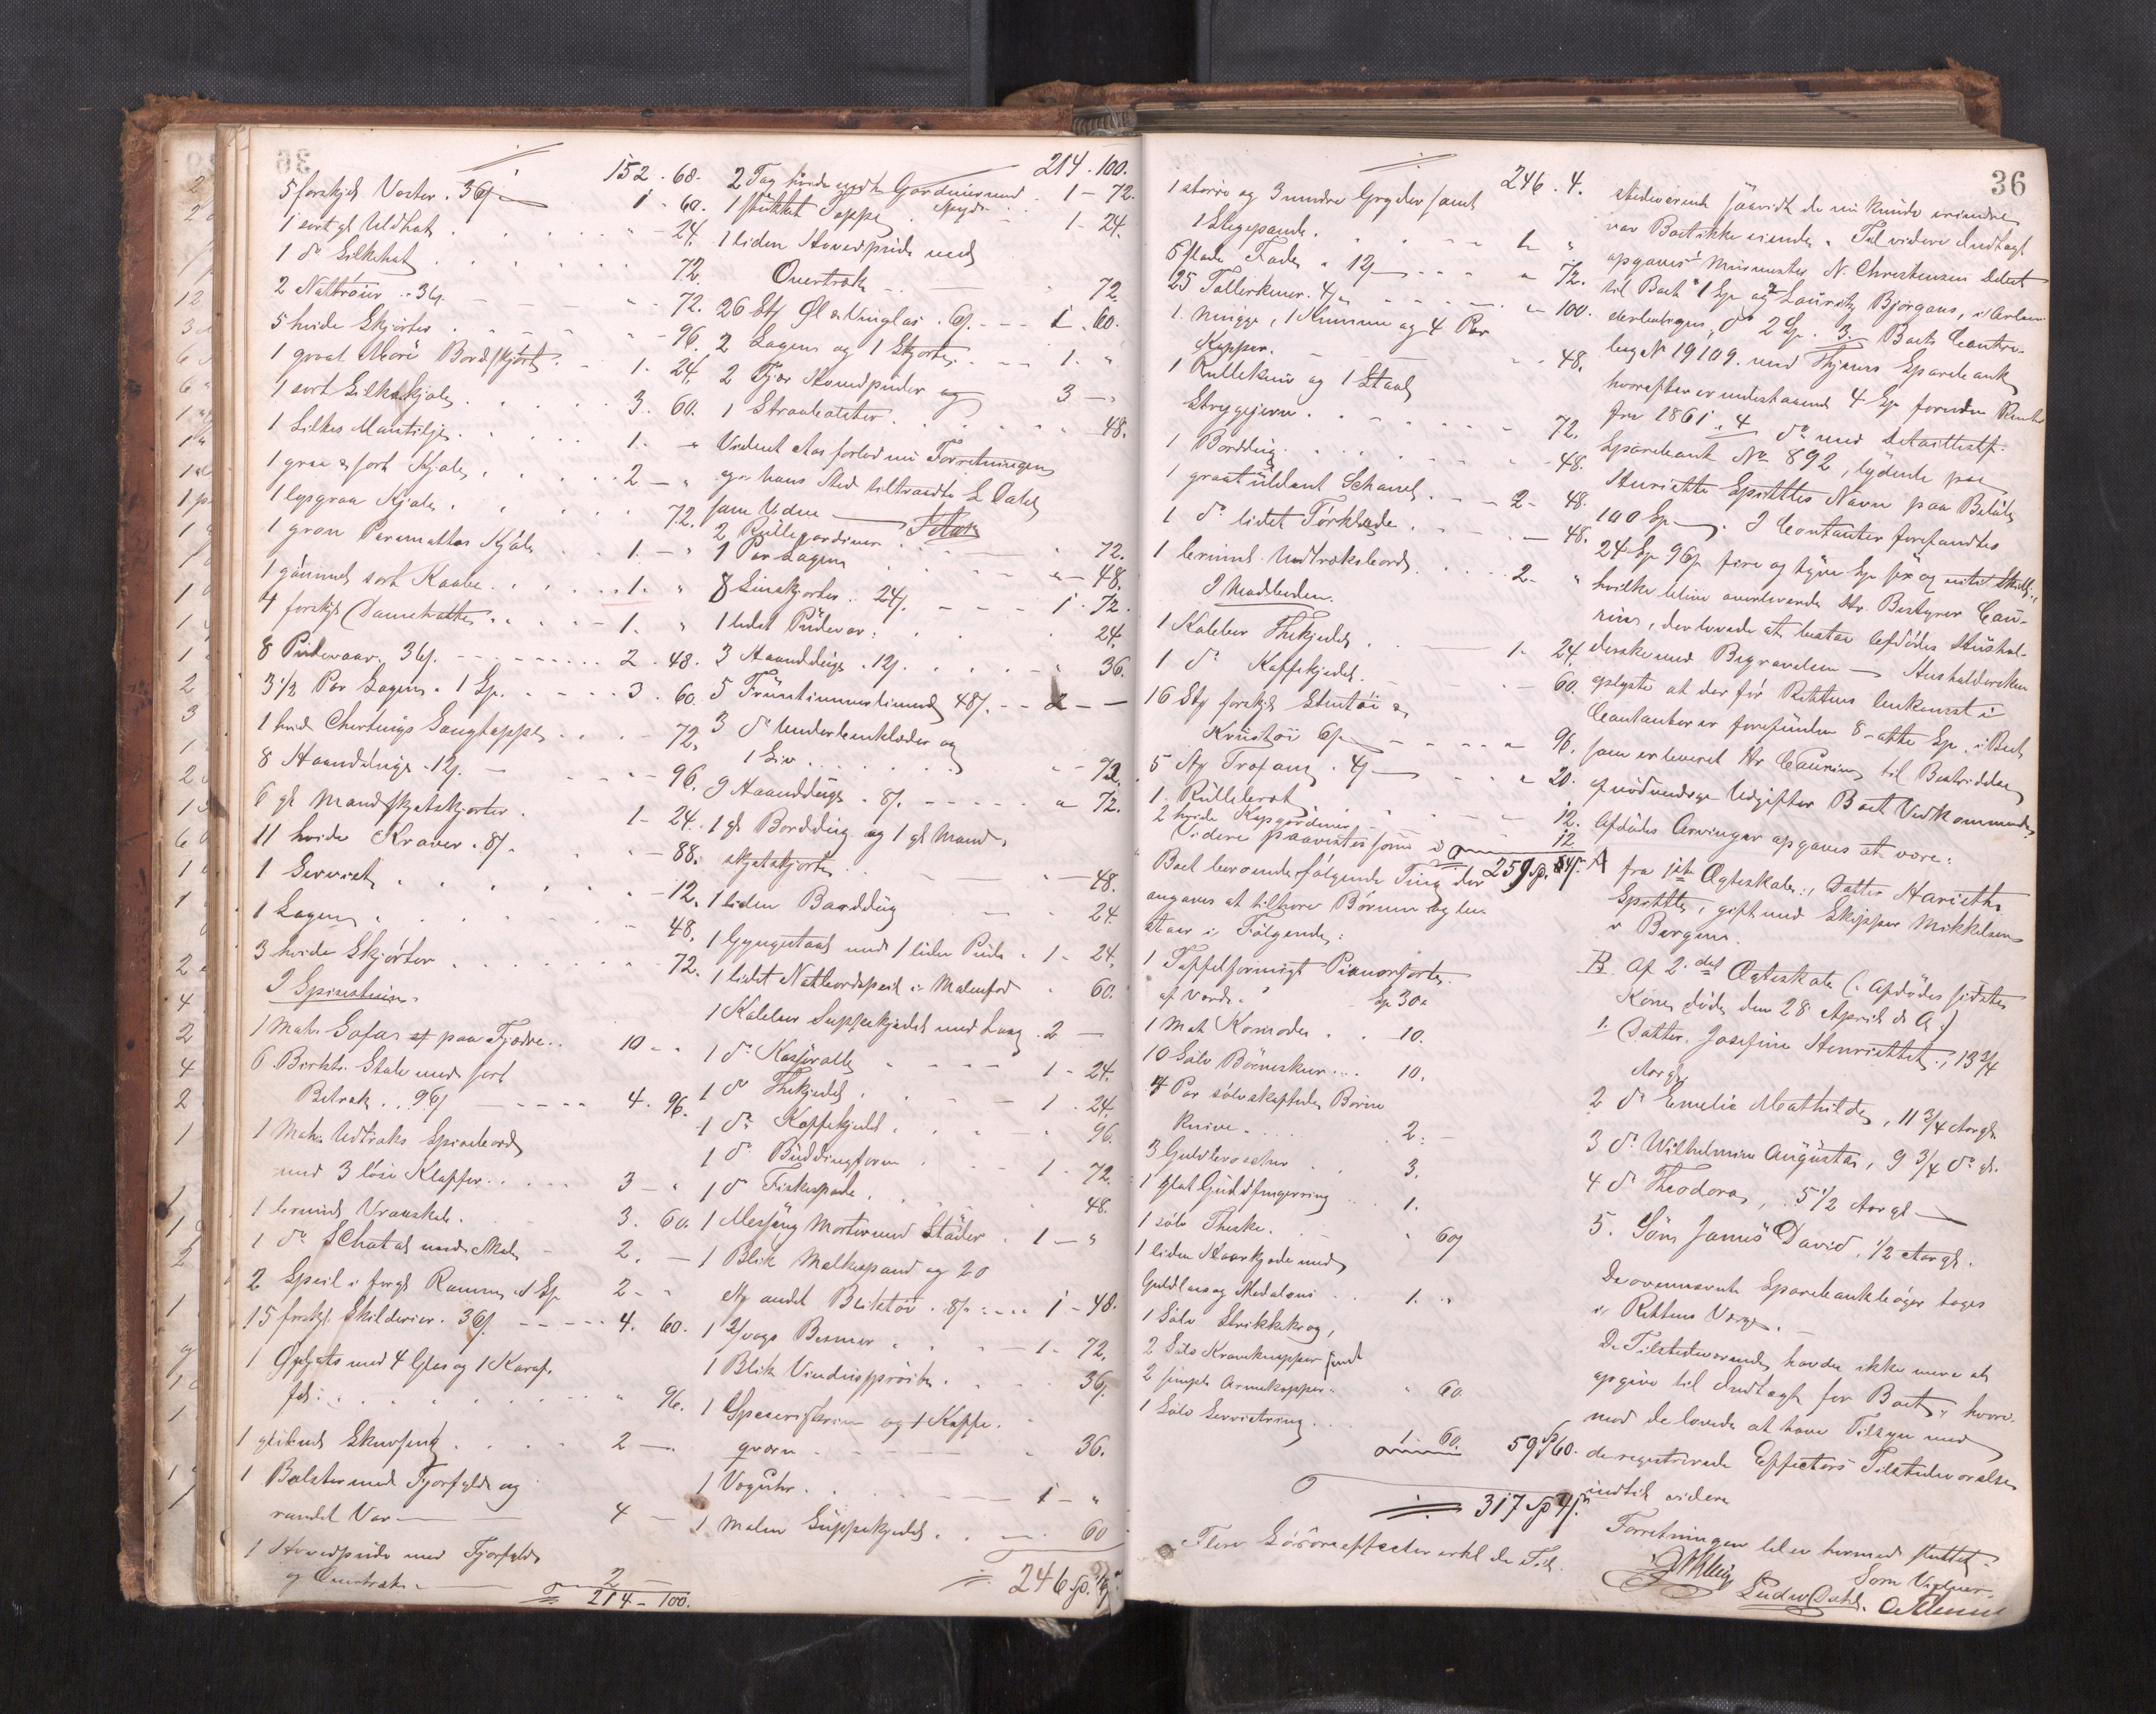 152 . 68.
5 forskjl Vester . 36 β 1 . 60.
1 sort gl Uldhat " 24.
1 do Silkehat 72.
2 Nattröier . 36 β. 72.
5 hvide Skjörter 96.
1 graat Moré Bordskjört 1. 24.
1 sort Silkekjole 3. 60.
1 Silkes Mantilje 1. "
1 graa & sort Kjole 2 — "
1 lysgraa Kjole 72.
1 grøn Paramattas Kjole 1. — "
1 gammel sort Kaabe 1. "
4 forskjl Damehatte 1. "
8 Pudevaar. 36 β. 2 . 48.
3 1/2 Par Lagens . 1 Sp. 3. 60.
1 hvid Chertings Sengteppe 72.
8 Haandduge . 12 β. 96.
6 gl Mandfkjetskjorter 1 - 24.
11 hvide Kraver . 8 β. 88.
1 Serviet 12.
1 Lagen 48.
3 hvide Skjörter 72.
I Spisestuen.
1 Mah. Sofa paa Fjædre 10 - "
6 Birkts. Stole med sort
Betræk . . 96 β 4. 96.
1 Mah. Udtræks Spisebord
med 3 löse Klapper 3 — "
1 brunt Vraaskab 3. 60.
1 do Schatol med Skab 2. —
2 Speil i forgl Ramme 1 Sp 2 - "
15 forskjl. Skilderier . 36 β. 4. 60.
1 Oplats med 4 Glas og 1 Karaf-
fel: " 96.
1 Skuvseng 2 —
1 Bolster med Fjærfyld og
randet Vaar 4 —
1 Hovedpude med Fjærfyld
og Overtræk 2 —
214 - 100.
214 . 100.
2 Fag hvide Gardiner med 1 — 72.
1 stukket Teppe 1 - 24.
1 liden Hovedpude med
Overtræk 72.
26 Stk Øl & Vinglas . 6 β. 1 . 60.
2 Lagens og 1 Skjorte 1. "
2 Fjær Hovedpuder og
1 Straabolster 3 — 48.
Vidnet Aas forlod nu Forretningen
og i hans Sted tiltraadte L Dahl
som Vidne
2 Rullegardiner 72.
1 Par Lagen — 48.
8 Linskjorter . 24 β. 1 . 72.
1 lidet Pudevar 24.
3 Haandduge . 12 β. 36.
5 Fruentimmerlinned 48 β. 2 — —
3 do Underbenklæder og
1 Liv 72.
9 Haandduge . 8 β. 72.
1 gl Borddug og 1 gl Mand-
skjetskjorte 48.
1 liden Borddug 24.
1 Gyngestol med 1 liden Pude 1 - 24.
1 lidet Natbordspeil i Malmfod 60.
1 Kobber Suppekjedel med Laag 2 —
1 do Kasserolle 1 - 24.
1 do Thekjedel 1 . 24.
1 do Kaffekjedel 96.
1 do Buddingform 1 . 72.
1 do Fiskespade 48.
1 Messing Morter med Stöder 1 — "
1 Blik Melkespand og 20
Stk andet Bliktöi . 8 β. 1 - 48.
1 Bismer 1 - 72.
1 Blik Vinduesspröite 36.
1 og 1 Kaffe-
qværn 36.
1 Veguhr 1 - "
1 Malm Suppekjedel 60
246 Sp. 4 β.
36
246 . 4.
1 större og 3 mindre Gryder samt
1 Stegepande 1. "
6 flade Fade . 12 β " 72.
25 Tallerkener . 4 β " 100.
1 Mugge, 1 Kumme og 4 Par
Kopper. 48.
1 Rullekniv og 1 Staal
Strygejern 72.
1 Borddug 48.
1 graat uldent Schavl 2 - 48.
1 do lidet Törklæde — 48.
1 brunt Uudtræksbord 2 - "
I Madboden.
1 Kobber Thekjedel 1 - 24.
1 do Kaffekjedel. 60.
16 Stk forskjl Stentöi &
Krustöi 6 β 96.
5 Stk Trefang . 4 β 20.
1 Rullebræt 12.
2 hvide Kapgardiner 12
Videre paavistes som i
259 Sp. 64 β.
Boet beroende fölgende Ting der
angaves at tilhöre Börnene og be-
staar i Følgende:
1 Taffelformigt Pianoforte
af Værdi Sp 30 "
1 Mah Komode 10.
10 Sölv Börneskeer 10.
4 Par sölvskaftede Börne
knive 2. -
3 Guldbrocher 3.
1 glat Guldfingerring 1.
1 sölv Theske 60 β
1 liden Haarkjede med
Guldlaas og Medaloni 1. "
1 Sölv Strikkekrog,
2 Sölv Kraveknapper samt
2 simple Armeknapper " 60
1 Sölv Servietring
1 - 60. 59 Sp 60.
317 Sp 4 β.
Flere Löröreeffecter erkl de Tid.
stedeværende saavidt de nu kunde erindre
var Boet ikke eiende. Til videre Indtægt
opgaves Muurmester N. Christensen Debet
til Boet 1 Sp og 2 Lauritz Björgaas, i Arbei-
derboligen, do 2 Sp. 3. Boets Contra-
bog No 19109. med Thjems Sparebank
hvorefter er indestaaende 4 Sp foruden Renter
fra 1861. 4 do med
Sparebank No 892, lydende paa
Henriette Spittles Navn paa Belöb
100 Sp. I Contanter forefandtes
24 Sp 96 β fire og tyve Sp sex og niti Skill.,
hvilke bleve overleverede Hr. Bestyrer Cau-
rins, der lovede at betale Afdödes Hushol-
derske med Begravelsen — Husholdersken
oplyste at der för Rettens Ankomst i
Contanter er forefunden 8 - otte Sp, i Boet
som er leveret Hr Caurins til Bestridelse
af nödvendige Udgifter Boet Vedkommende
Afdödes Arvinger opgaves at være:
A fra 1ste Ægteskab:, Datter Henriethe
Spittle, gift med Skipper Mikkelsen
i Bergen.
B Af 2det Ægteskab (: Afdödes sidste
Kone, döde den 28 April d A :)
1. Datter. Josefine Henriette, 13 3/4
Aargl.
2 do Emelie Mathilde, 11 3/4 Aargl.
3 do Wilhelmine Augusta, 9 3/4 do gl.
4 do Theodora, 5 1/2 Aar gl —
5. Søn James David, 1/2 Aargl.
De ovennævnte Sparebankböger toges
i Rettens Værge. —
De Tilstedeværende havde ikke mere at
opgive til Indtægt for Boet, hvor-
med de lovede at have Tilsyn med
de registrerede Effecters Tilstedeværelse
indtil videre
Forretningen blev hermed sluttet.
Som Vidner
Ludv Dahl.